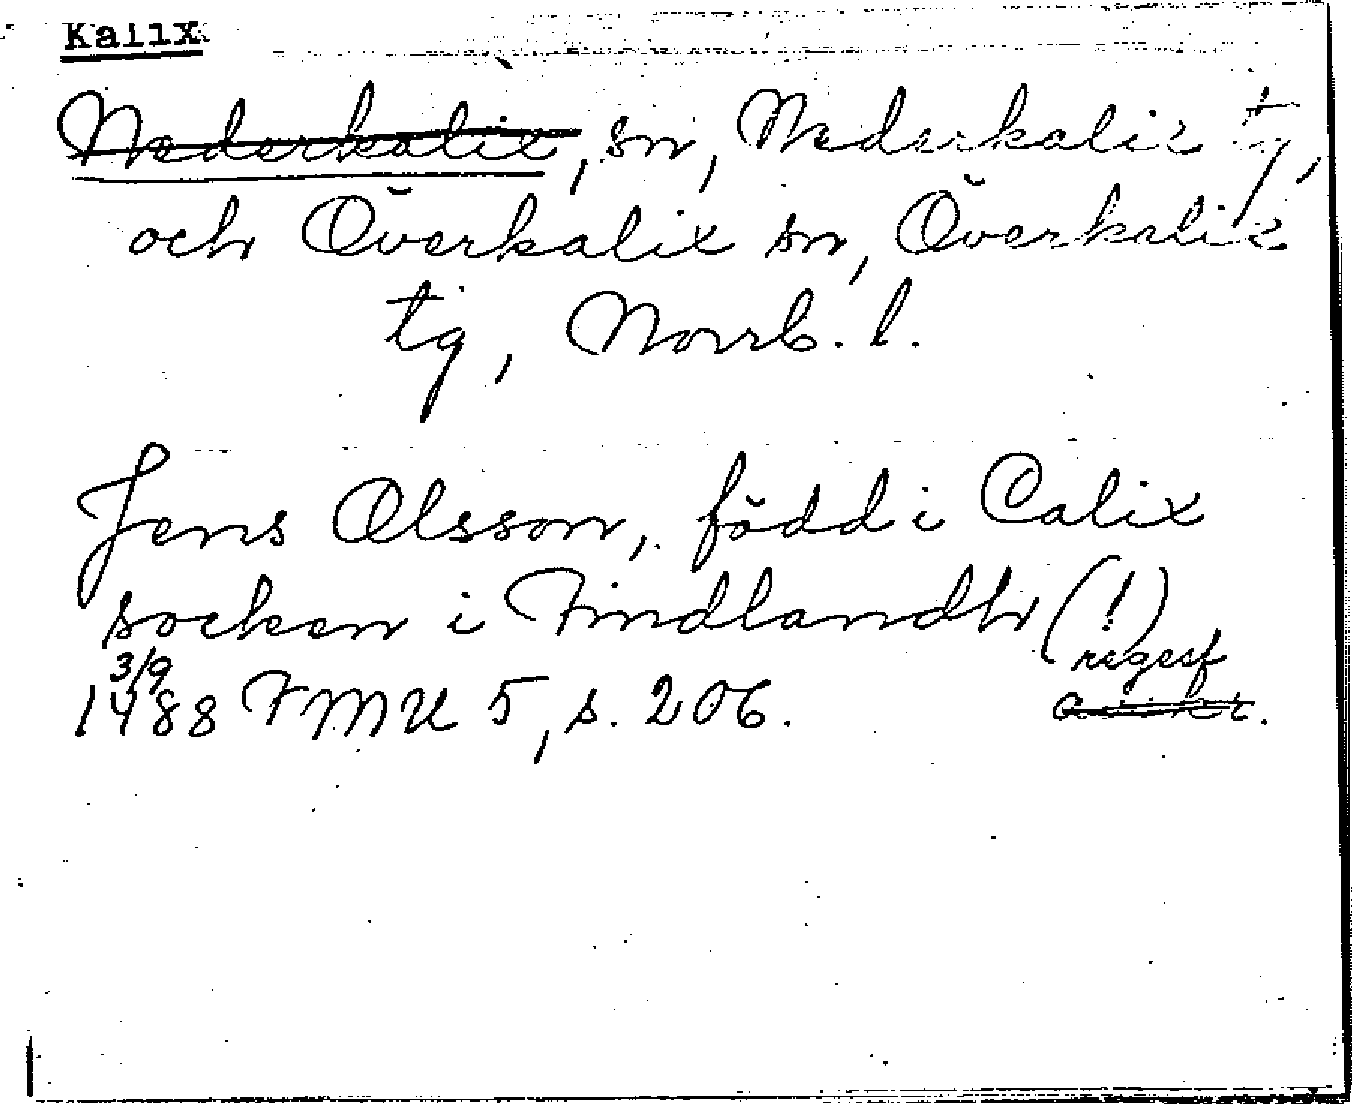 Kalix
Nederkalix, sn, Nederkalix tg,
och Överkalix sn, Överkalix
tg, Norrb. l.
Jens Olsson, född i Calix
socken i Findlandh (!)
3/9 regest
1488 FMU 5, s. 206.